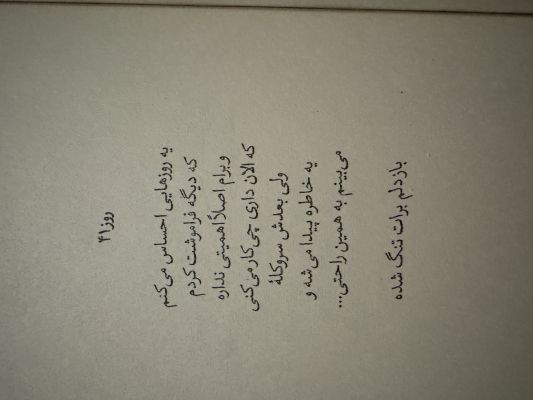 روز ۴۱
یه روزهایی احساس می‌کنم
که دیگه فراموشت کردم
و برام اصلاً اهمیتی نداره
که الان داری چی‌کار می‌کنی
ولی بعدش سروکلهٔ
یه خاطره پیدا می‌شه و
می‌بینم به همین راحتی...
باز دلم برات تنگ شده